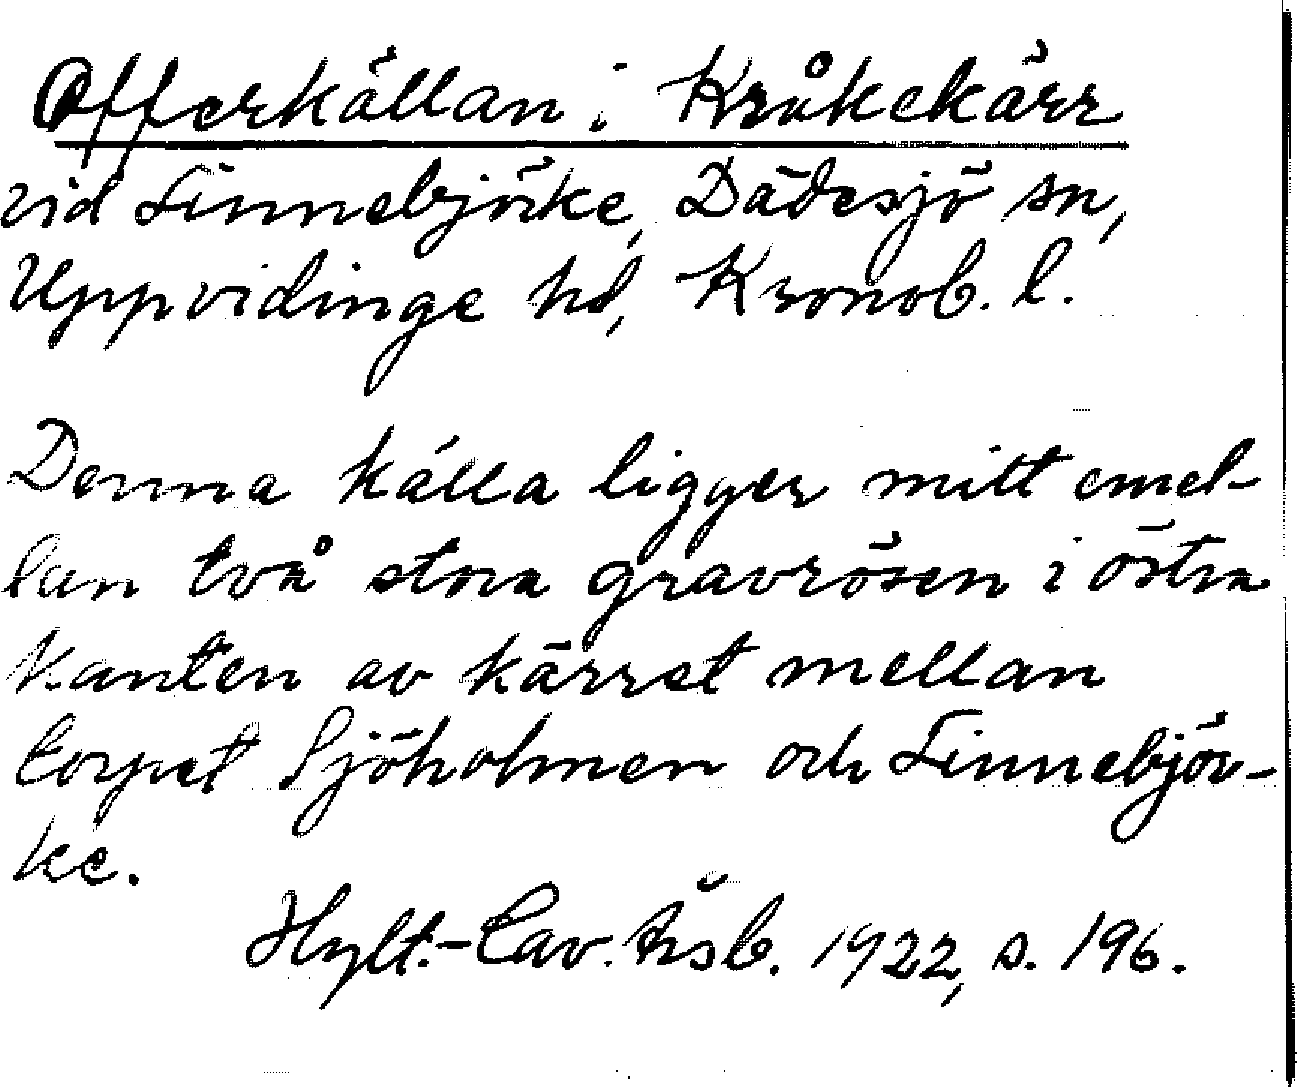 Offerkällan i Kråkekärr
vid Linnebjörke, Dädesjö sn,
Uppvidinge hd, Kronob. l.
Denna källa ligger mitt emel-
lan två stora gravrösen i östra
kanten av kärret mellan
torpet Sjöholmen och Linnebjör-
ke.
Hylt.-Cav. Årsb. 1922, s. 196.